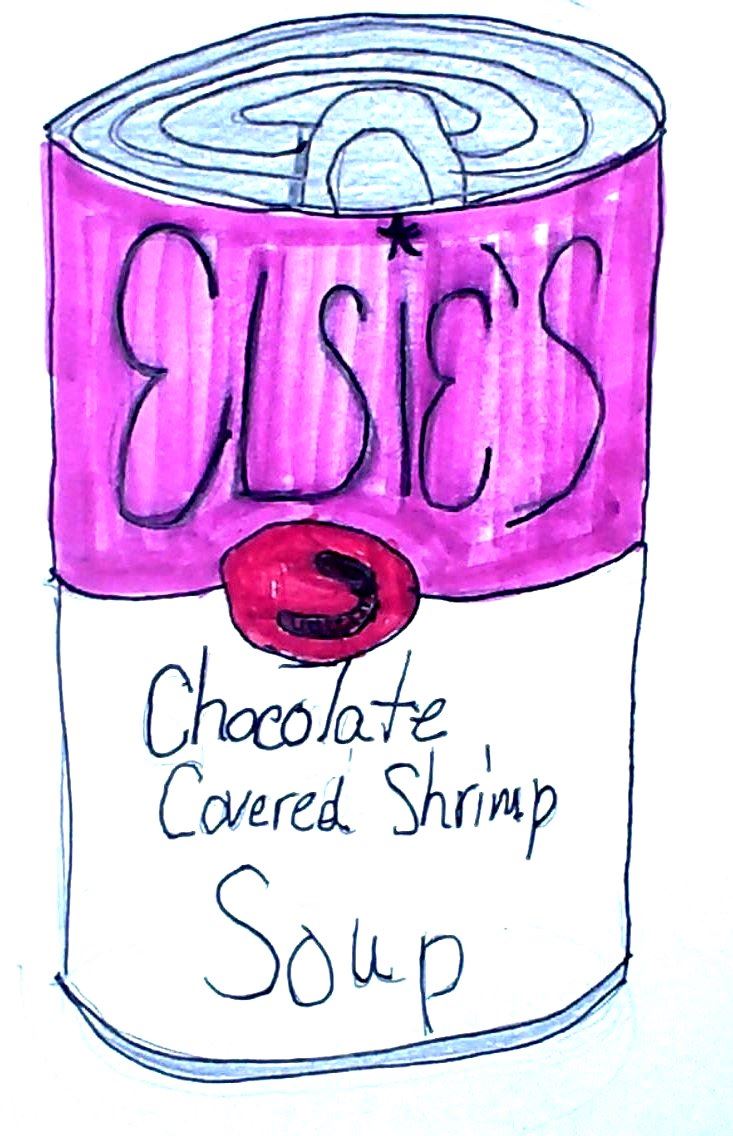 ELSIE'S
Chocolate
Covered Shrimp
Soup